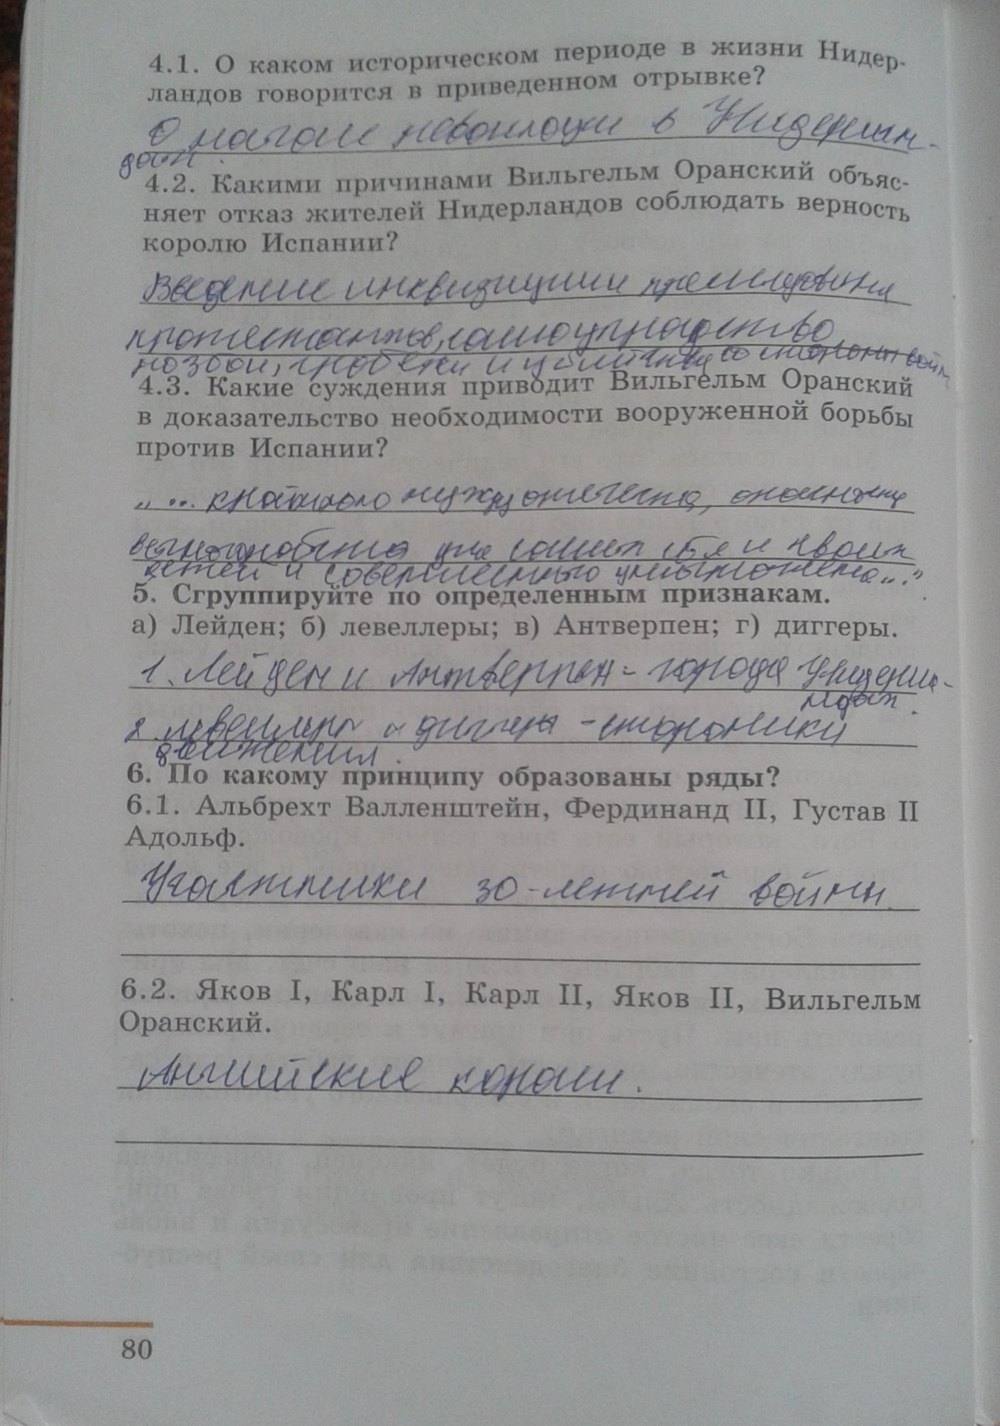 4.1. О каком историческом периоде в жизни Нидер-
ландов говорится в приведенном отрывке?
О начале революции в Нидерлан-
дах.
4.2. Какими причинами Вильгельм Оранский объяс-
няет отказ жителей Нидерландов соблюдать верность
королю Испании?
Введение инквизиции преследования
протестантов, самоуправство
разбои, грабежи и убийства со стороны войк
4.3. Какие суждения приводит Вильгельм Оранский
в доказательство необходимости вооруженной борьбы
против Испании?
„... крайнюю нужду отечества, опасность
вечного рабства для самих себя и своих
детей и совершенного уничтожения..."
5. Сгруппируйте по определенным признакам.
а) Лейден; б) левеллеры; в) Антверпен; г) диггеры.
1. Лейден и Антверпен - города Нидерлан-
дах.
2 левеллеры и диггеры - сторонники
движения.
6. По какому принципу образованы ряды?
6.1. Альбрехт Валленштейн, Фердинанд II, Густав II
Адольф.
Участники 30-летней войны.
6.2. Яков I, Карл I, Карл II, Яков II, Вильгельм
Оранский.
Английские короли.
80